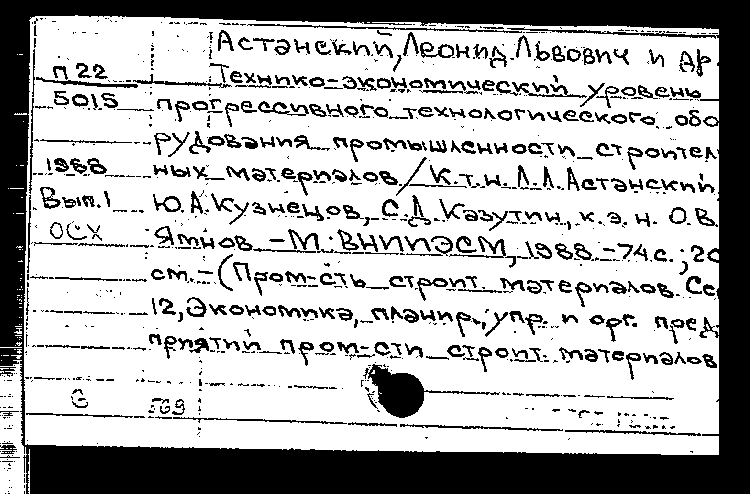 Астанский, Леонид Львович и др.
П 22 Технико-экономический уровень
5015 прогрессивного технологического обо
рудования промышленности строител
1988 ных материалов / К.т.н. Л.Л. Астанский,
Вып. 1 Ю.А. Кузнецов, С.Д. Казутин, к.э.н. О.В.
ОСХ Ямнов. - М.: ВНИИЭСМ, 1988. - 74 с.; 20
см. - (Пром-сть строит. материалов. Се
12, Экономика, планир., упр. и орг. пред
приятий пром-сти строит. материалов
G 569